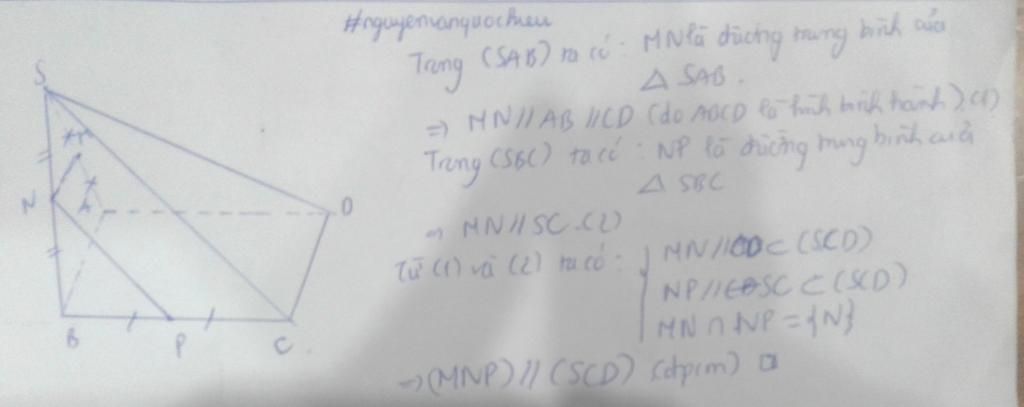 #nguyenvanquochieu
Trong (SAB) ta có: MN là đường trung bình của
△ SAB.
=> MN // AB // CD (do ABCD là hình bình hành).(1)
Trong (SBC) ta có: NP là đường trung bình của
△ SBC
=> MN // SC.(2)
Từ (1) và (2) ta có:
MN // CD ⊂ (SCD)
NP // SC ⊂ (SCD)
MN ∩ NP = {N}
=> (MNP) // (SCD) (đpcm) □
S
M
N
A
D
B
P
C